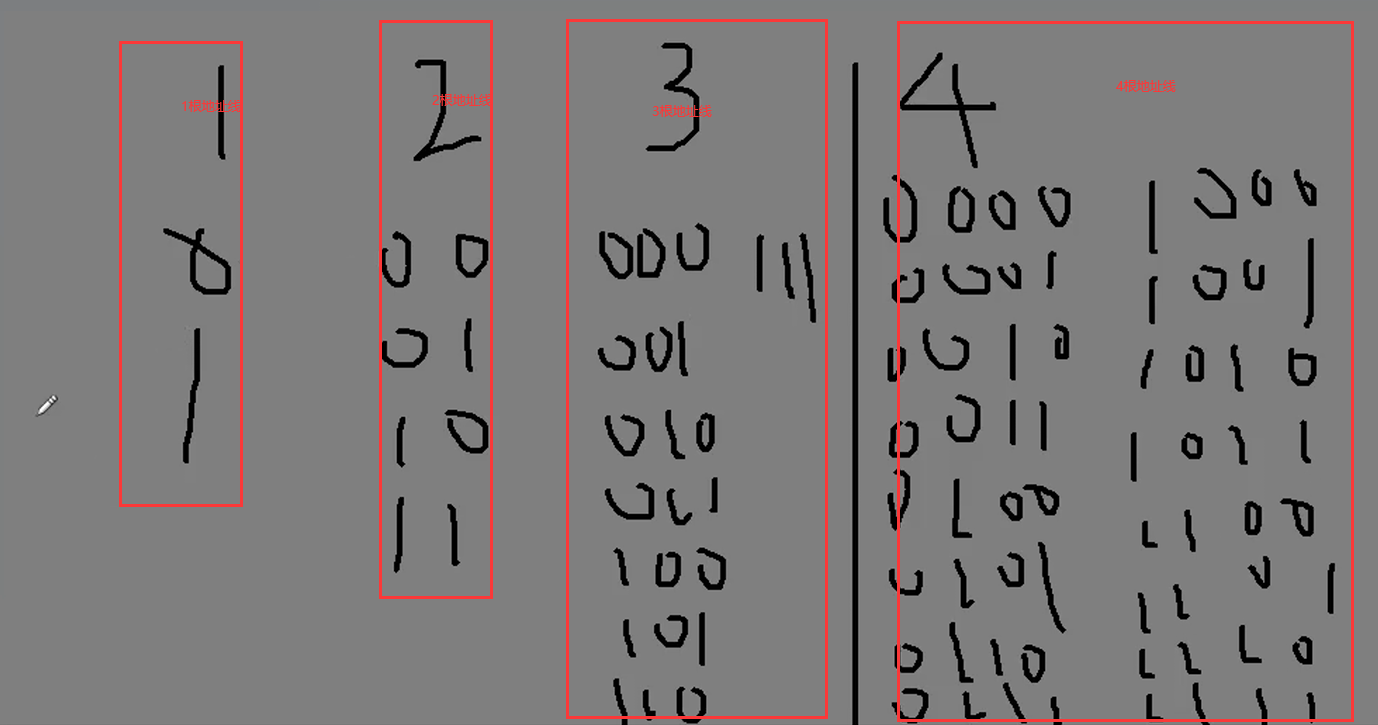 1
1根地址线
0
1
2
2根地址线
0 0
0 1
1 0
1 1
3
3根地址线
000
111
001
010
001
100
101
110
4
4根地址线
0000
0001
0010
0011
0100
0101
0110
0111
1000
1001
1010
1011
1100
1101
1110
1111